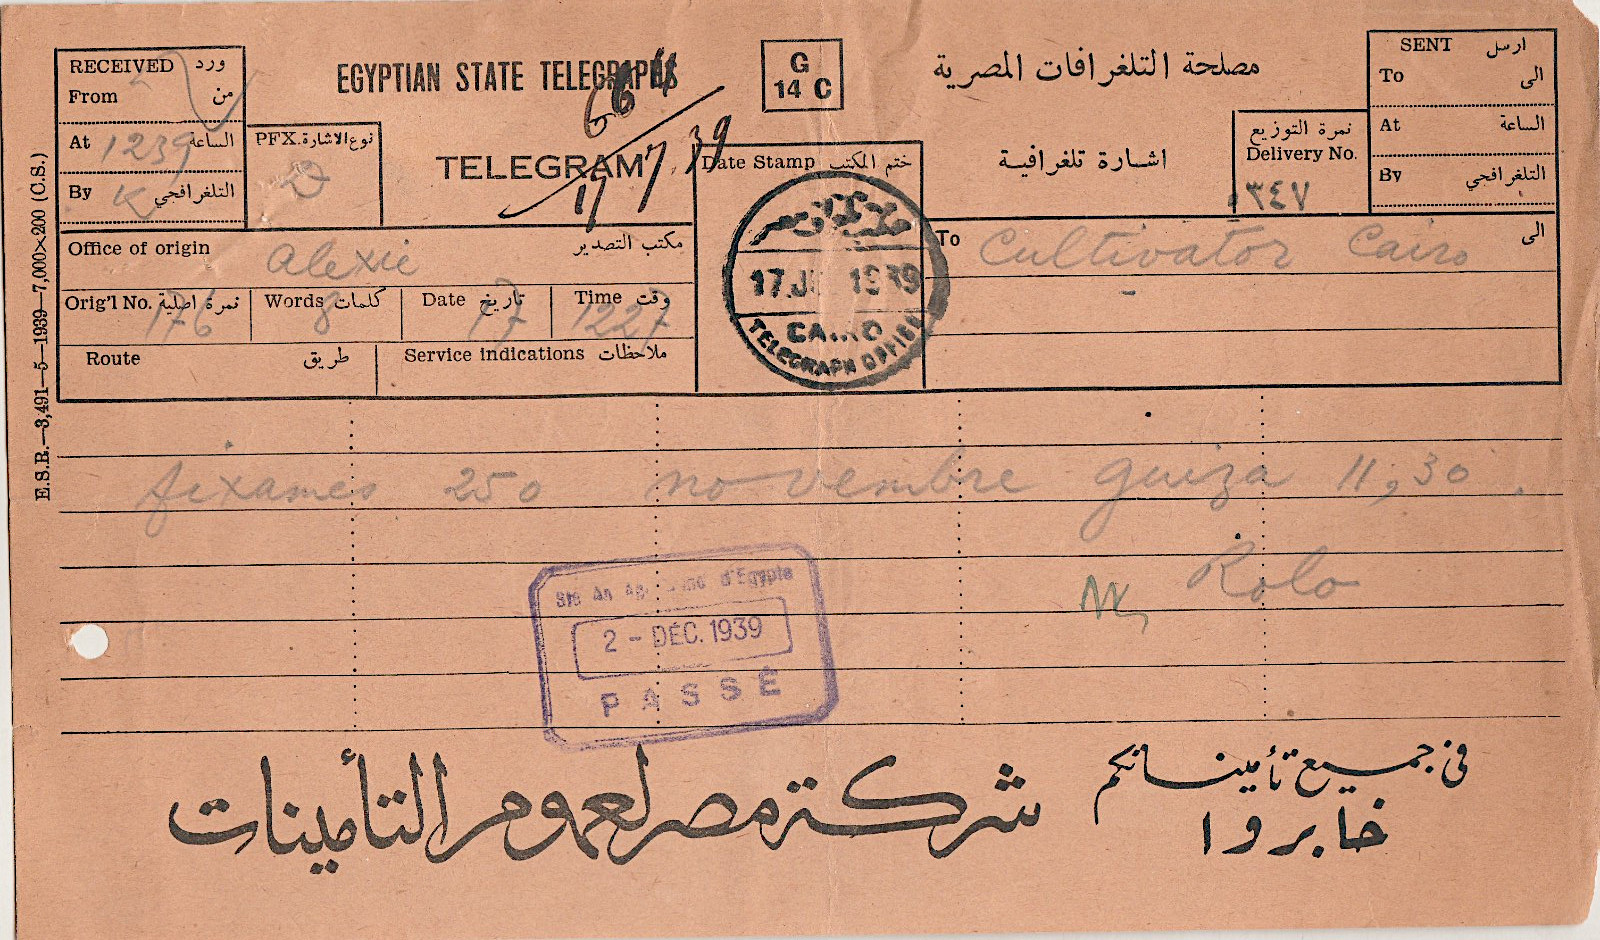 RECEIVED ورد
From من
At 1239 الساعة
By K التلغرافجي
PFX. نوع الاشارة
D
EGYPTIAN STATE TELEGRAPHS
TELEGRAM
17/7/39
G
14 C
مصلحة التلغرافات المصرية
اشارة تلغرافية
نمرة التوزيع
Delivery No.
٣٤٧
SENT ارسل
To الى
At الساعة
By التلغرافجي
Office of origin Alexie مكتب التصدير
Orig'l No. نمرة اصلية 176
Words كلمات 8
Date تاريخ 17
Time وقت 1227
Route طريق
Service indications ملاحظات
Date Stamp ختم المكتب
17.JU 1939
CAIRO
TELEGRAPH OFFICE
To Cultivator Cairo الى
fixames 250 novembre guiza 11,30
Rolo
Ste An d'Egypte
2 - DÉC. 1939
PASSÉ
فى جميع تأميناتكم
خابروا
شركة مصر لعموم التأمينات
E.S.B.—3,491—5—1939—7,000×200 (C.S.)